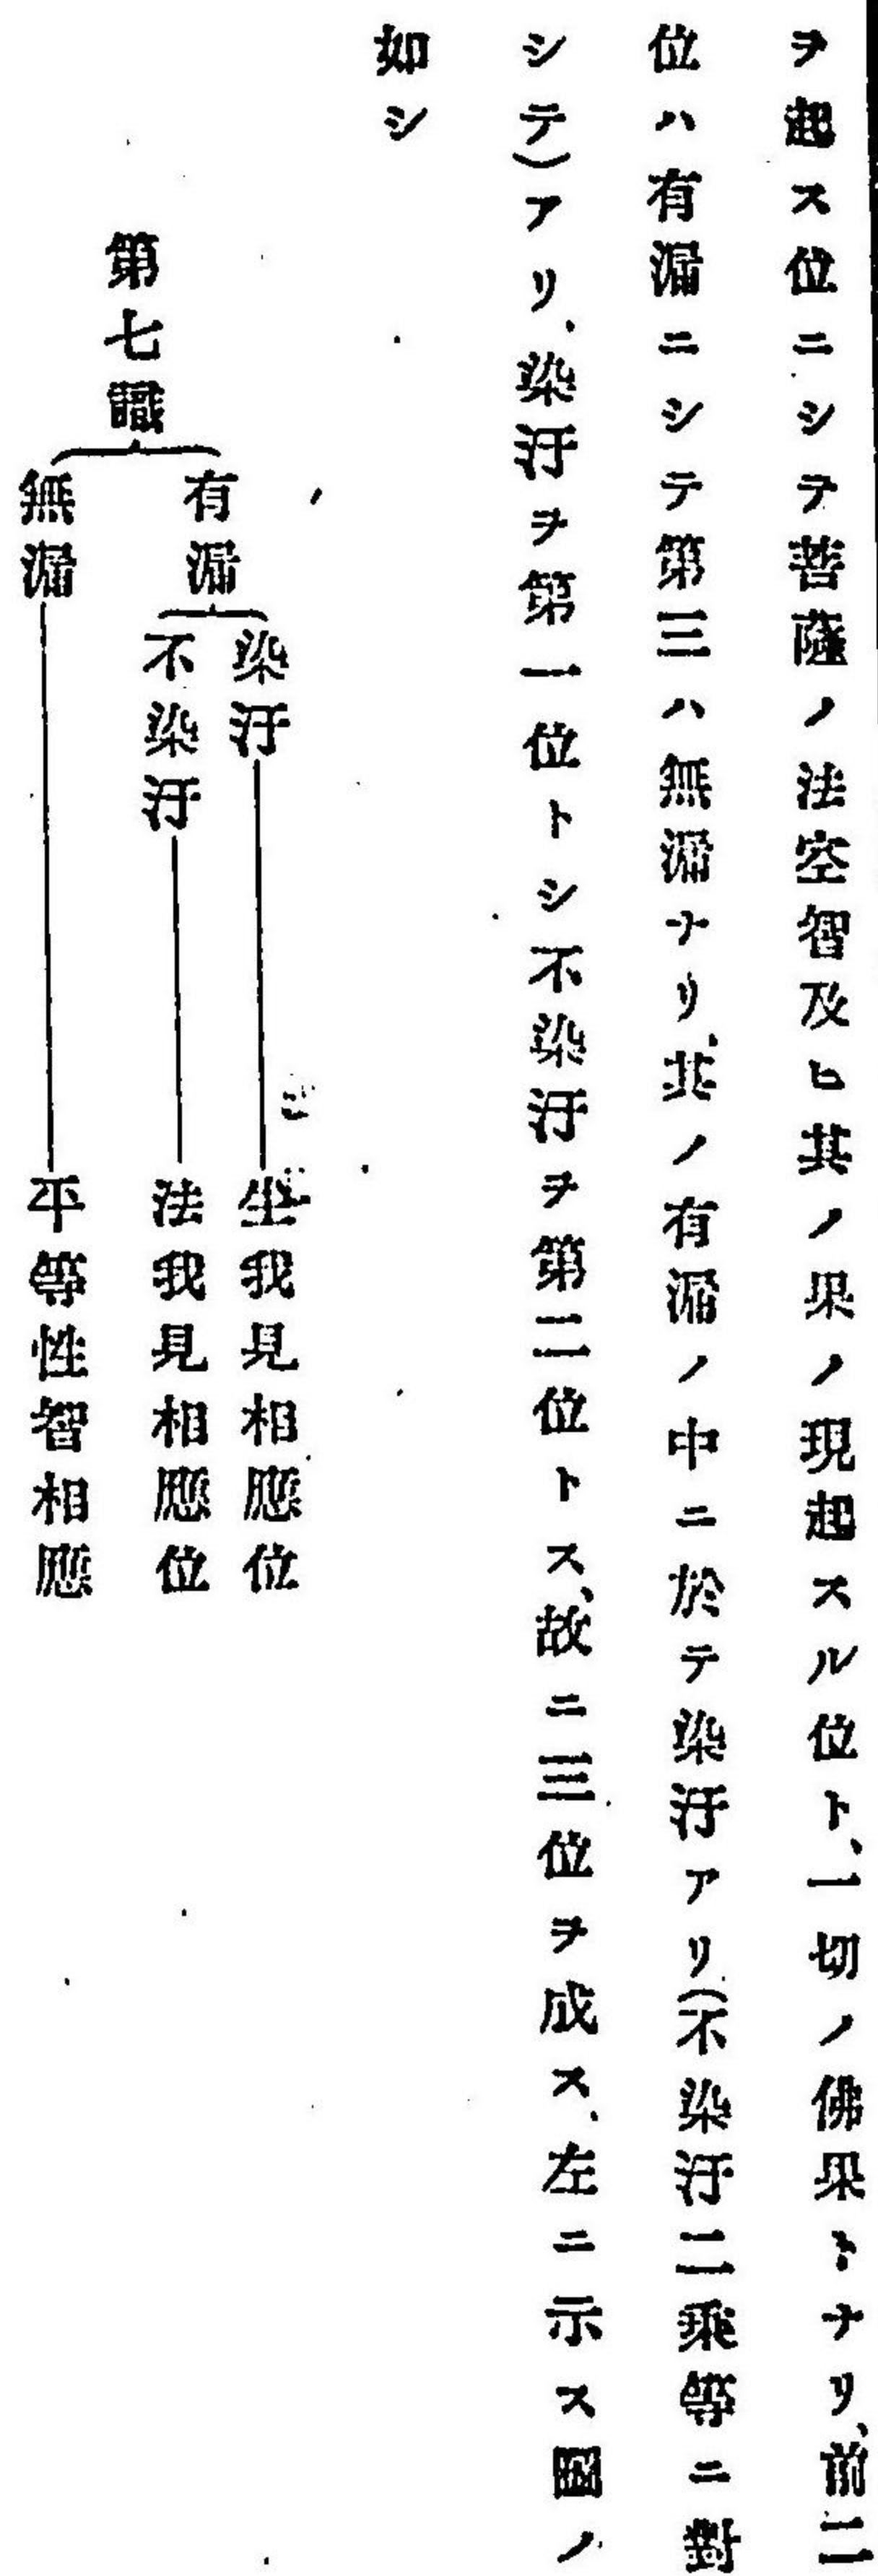 ヲ起ス位ニシテ菩薩ノ法空智及ヒ其ノ果ノ現起スル位ト、一切ノ佛果トナリ、前二
位ハ有漏ニシテ第三ハ無漏ナリ、其ノ有漏ノ中ニ於テ染汙アリ(不染汙二乘等ニ對
シテ)アリ、染汙ヲ第一位トシ不染汙ヲ第二位トス、故ニ三位ヲ成ス、左ニ示ス圖ノ
如シ
第七識
有漏
染汙
生我見相應位
不染汙
法我見相應位
無漏
平等性智相應